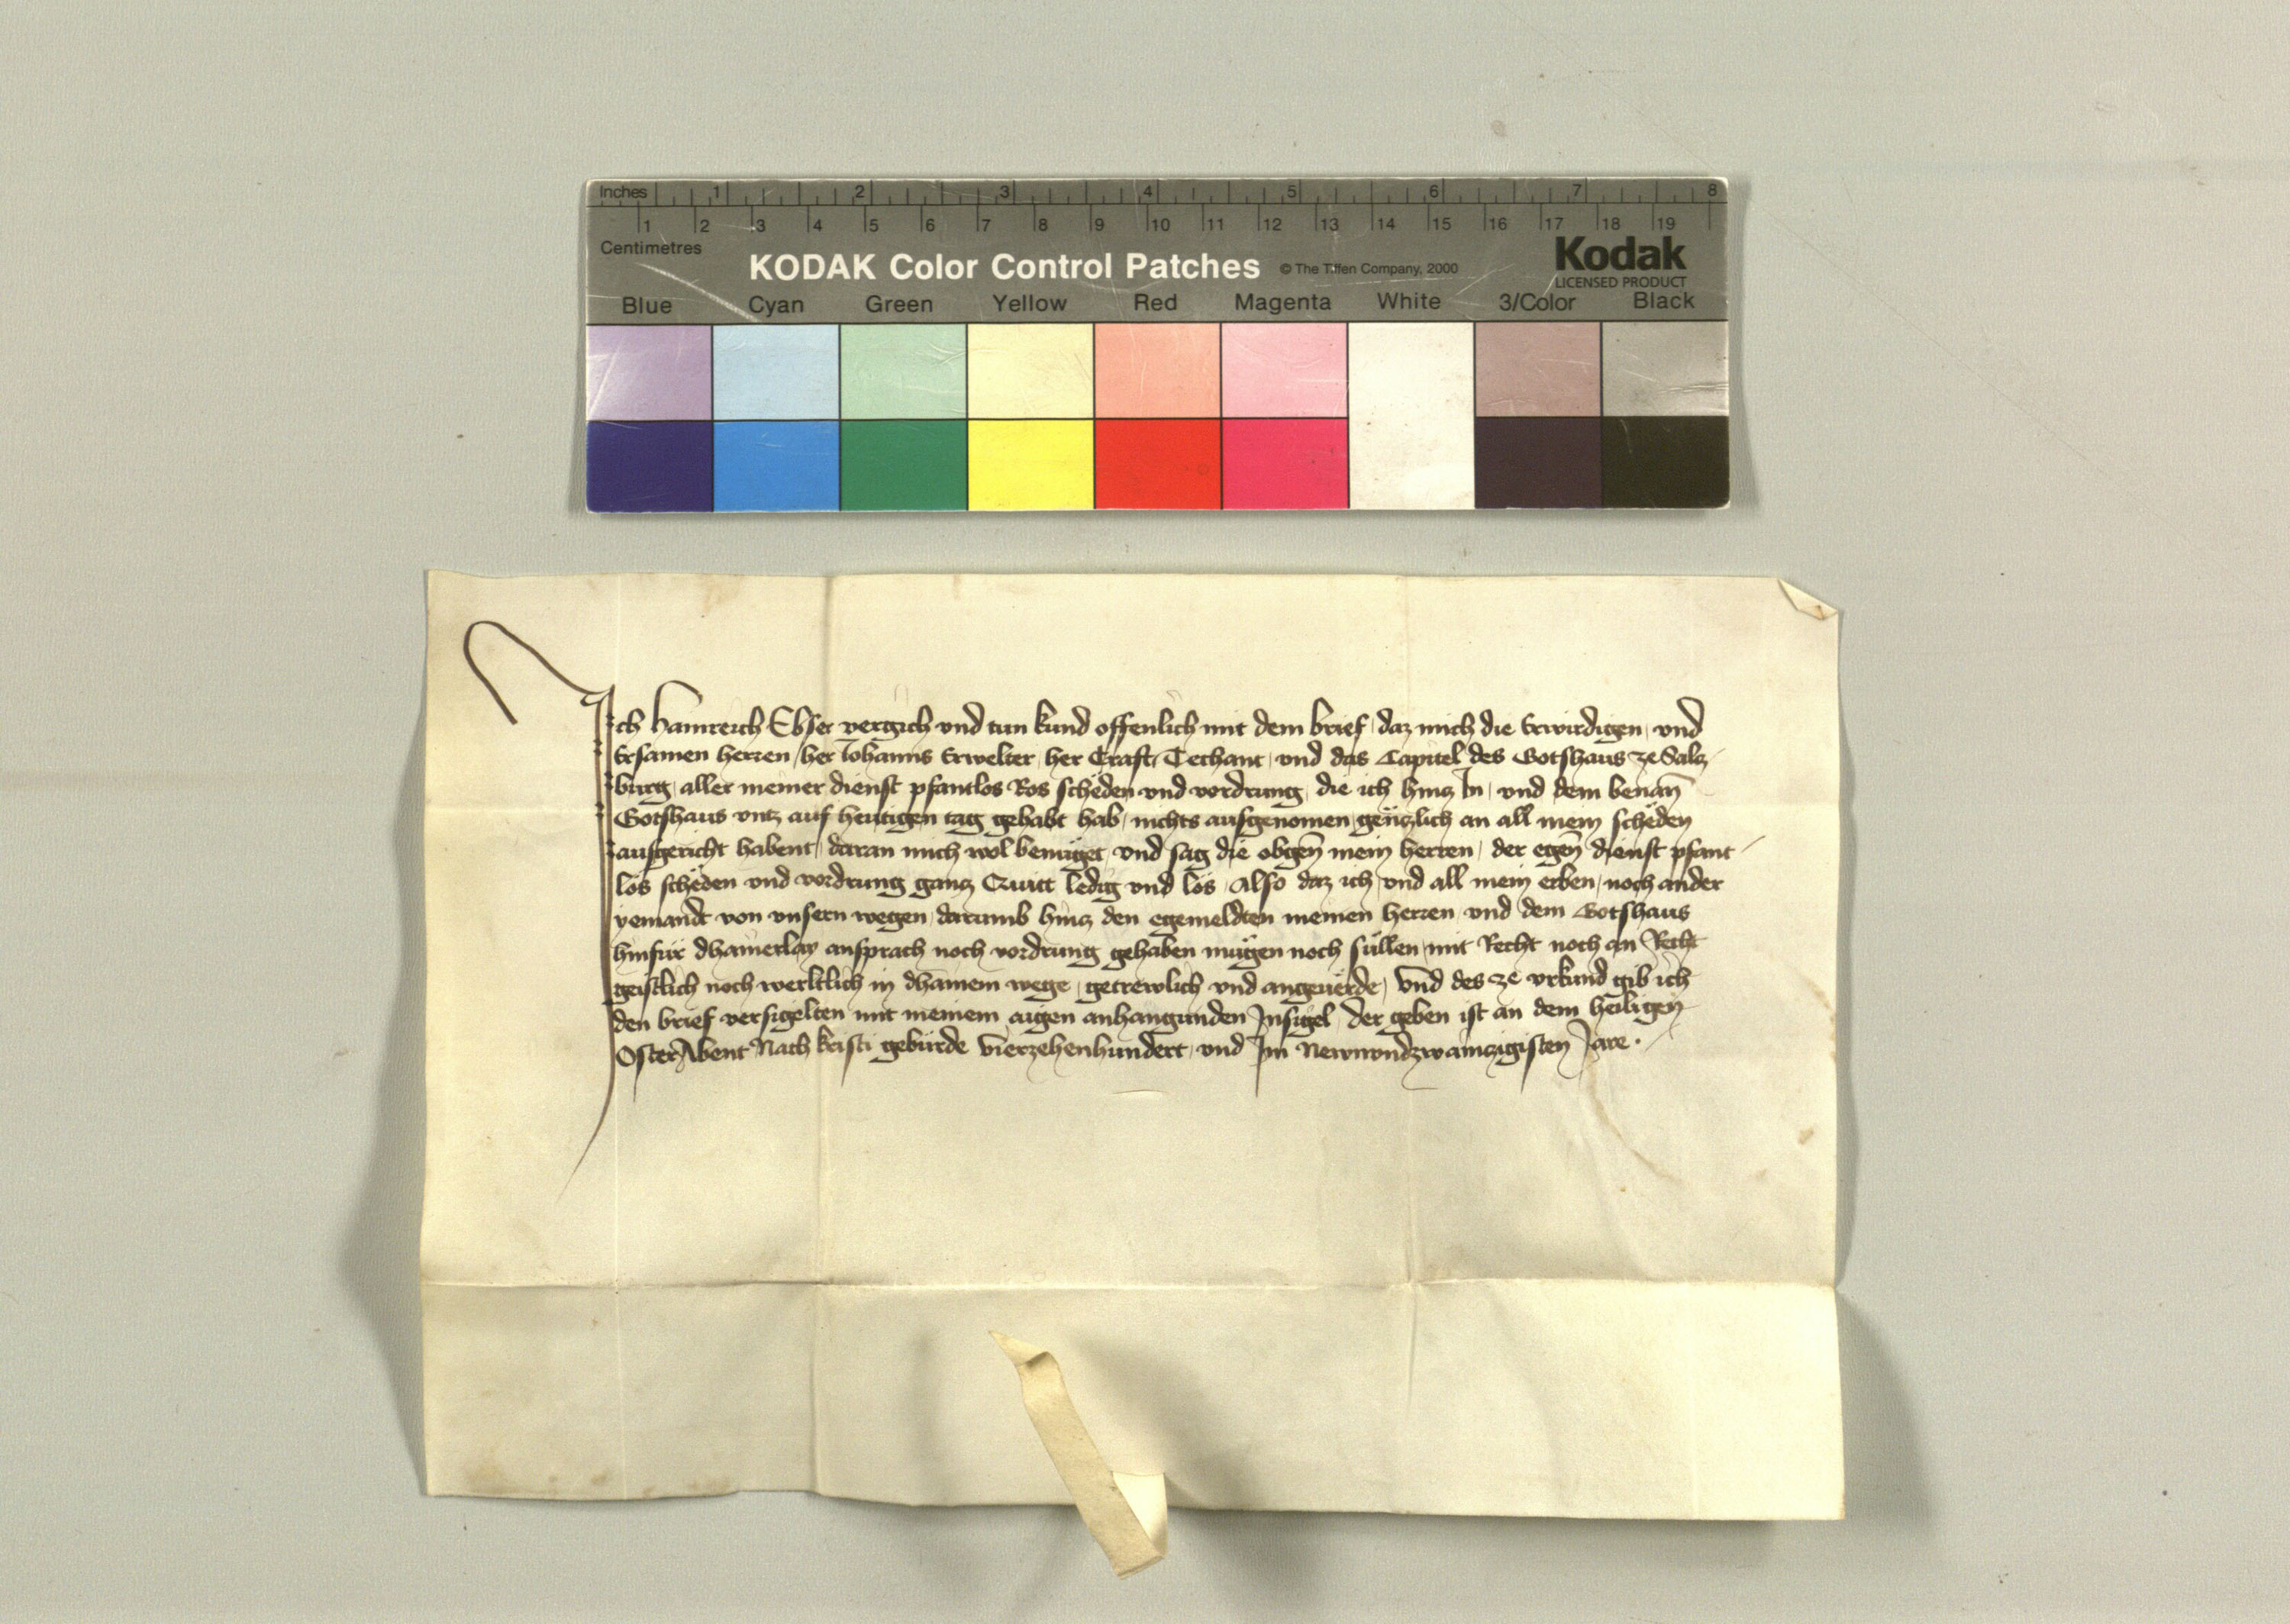 Inches 1 2 3 4 5 6 7 8
1 2 3 4 5 6 7 8 9 10 11 12 13 14 15 16 17 18 19
Centimetres
KODAK Color Control Patches © The Tiffen Company, 2000 Kodak
LICENSED PRODUCT
Blue Cyan Green Yellow Red Magenta White 3/Color Black
Ich Hainreich Ebser vergich vnd tun kund offenlich mit dem brief, daz mich die Erwirdigen, vnd
Ersamen herren, her Johanns Erwelter, her Craft, Techant, vnd das Capitel des Gotshaus ze Salcz
burg, aller meiner dienst pfantlos Ros scheden vnd vordrung, die ich hincz In, vnd dem benan̄
Gotshaus vntz auf heutigen tag gehabt hab, nichts ausgenomen, genczlich an all mein scheden
ausgericht habent, daran mich wol benuget, vnd sag die obgen̄ mein herren, der egen̄ dienst pfant
los scheden vnd vordrung gancz Quitt ledig vnd los, Also daz ich, vnd all mein erben, noch ander
yemandt von vnsern wegen, darumb hincz den egemeldten meinen herren vnd dem Gotshaus
hinfür dhainerlay ansprach noch vordrung gehaben mügen noch süllen, mit Recht noch an Recht
geistlich noch werltlich in dhainem wege, getrewlich vnd angeuerde, Vnd des ze vrkund gib ich
den brief versigelten mit meinem aigen anhangunden Insigel, Der geben ist an dem heiligen
OsterAbent Nach kristi gebürde vierzehenhundert, vnd Im Newnvndzwainczigisten Jare.